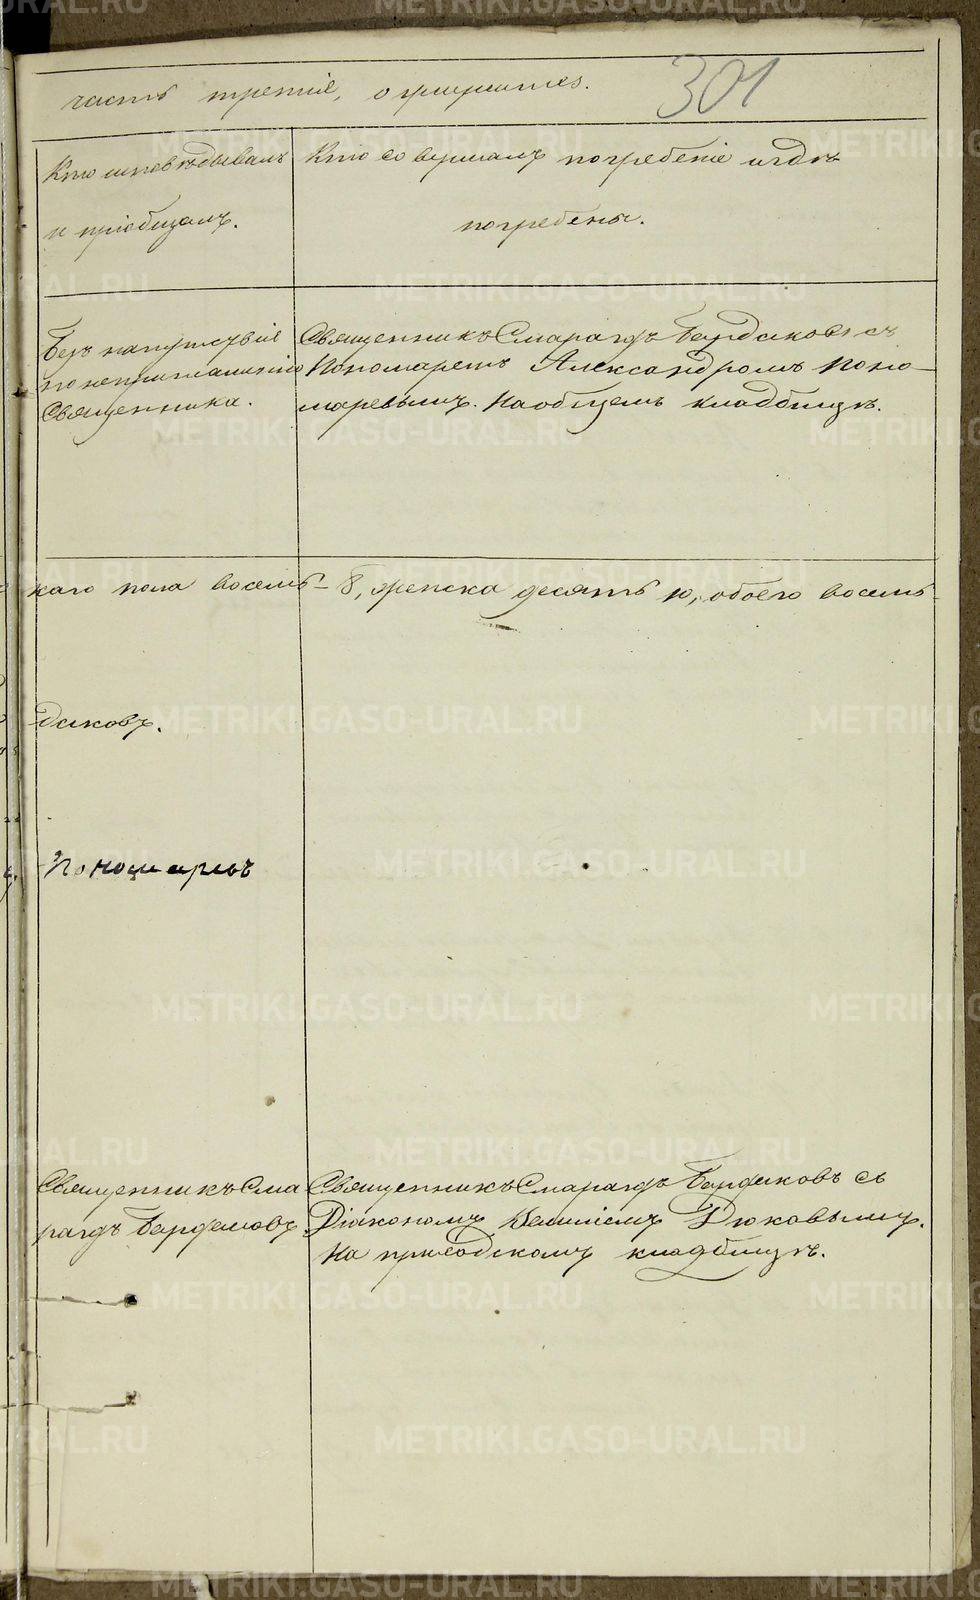 часть третiе, о умершихъ.
301
Кто исповѣдывалъ
и прiобщалъ.
Кто совершалъ погребенiе и гдѣ
погребены.
Безъ напутствiе
по неприглашенiю
Священника.
Священникъ Смарагдъ Бордаковъ съ
Пономаремъ Александромъ Поно-
маревымъ. На общемъ кладбищѣ.
каго пола восемь - 8, женска десять 10, обоего восемь-
даковъ.
Пономаревъ
Священникъ Сма
рагдъ
Священникъ Смарагдъ Бордаковъ съ
Дiакономъ Дюковымъ.
На приходскомъ кладбищѣ.
METRIKI.GASO-URAL.RU